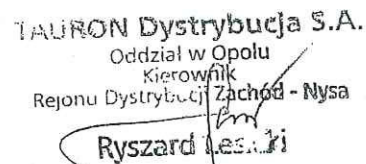 TAURON Dystrybucja S.A.
Oddział w Opolu
Kierownik
Rejonu Dystrybucji Zachód - Nysa
Ryszard